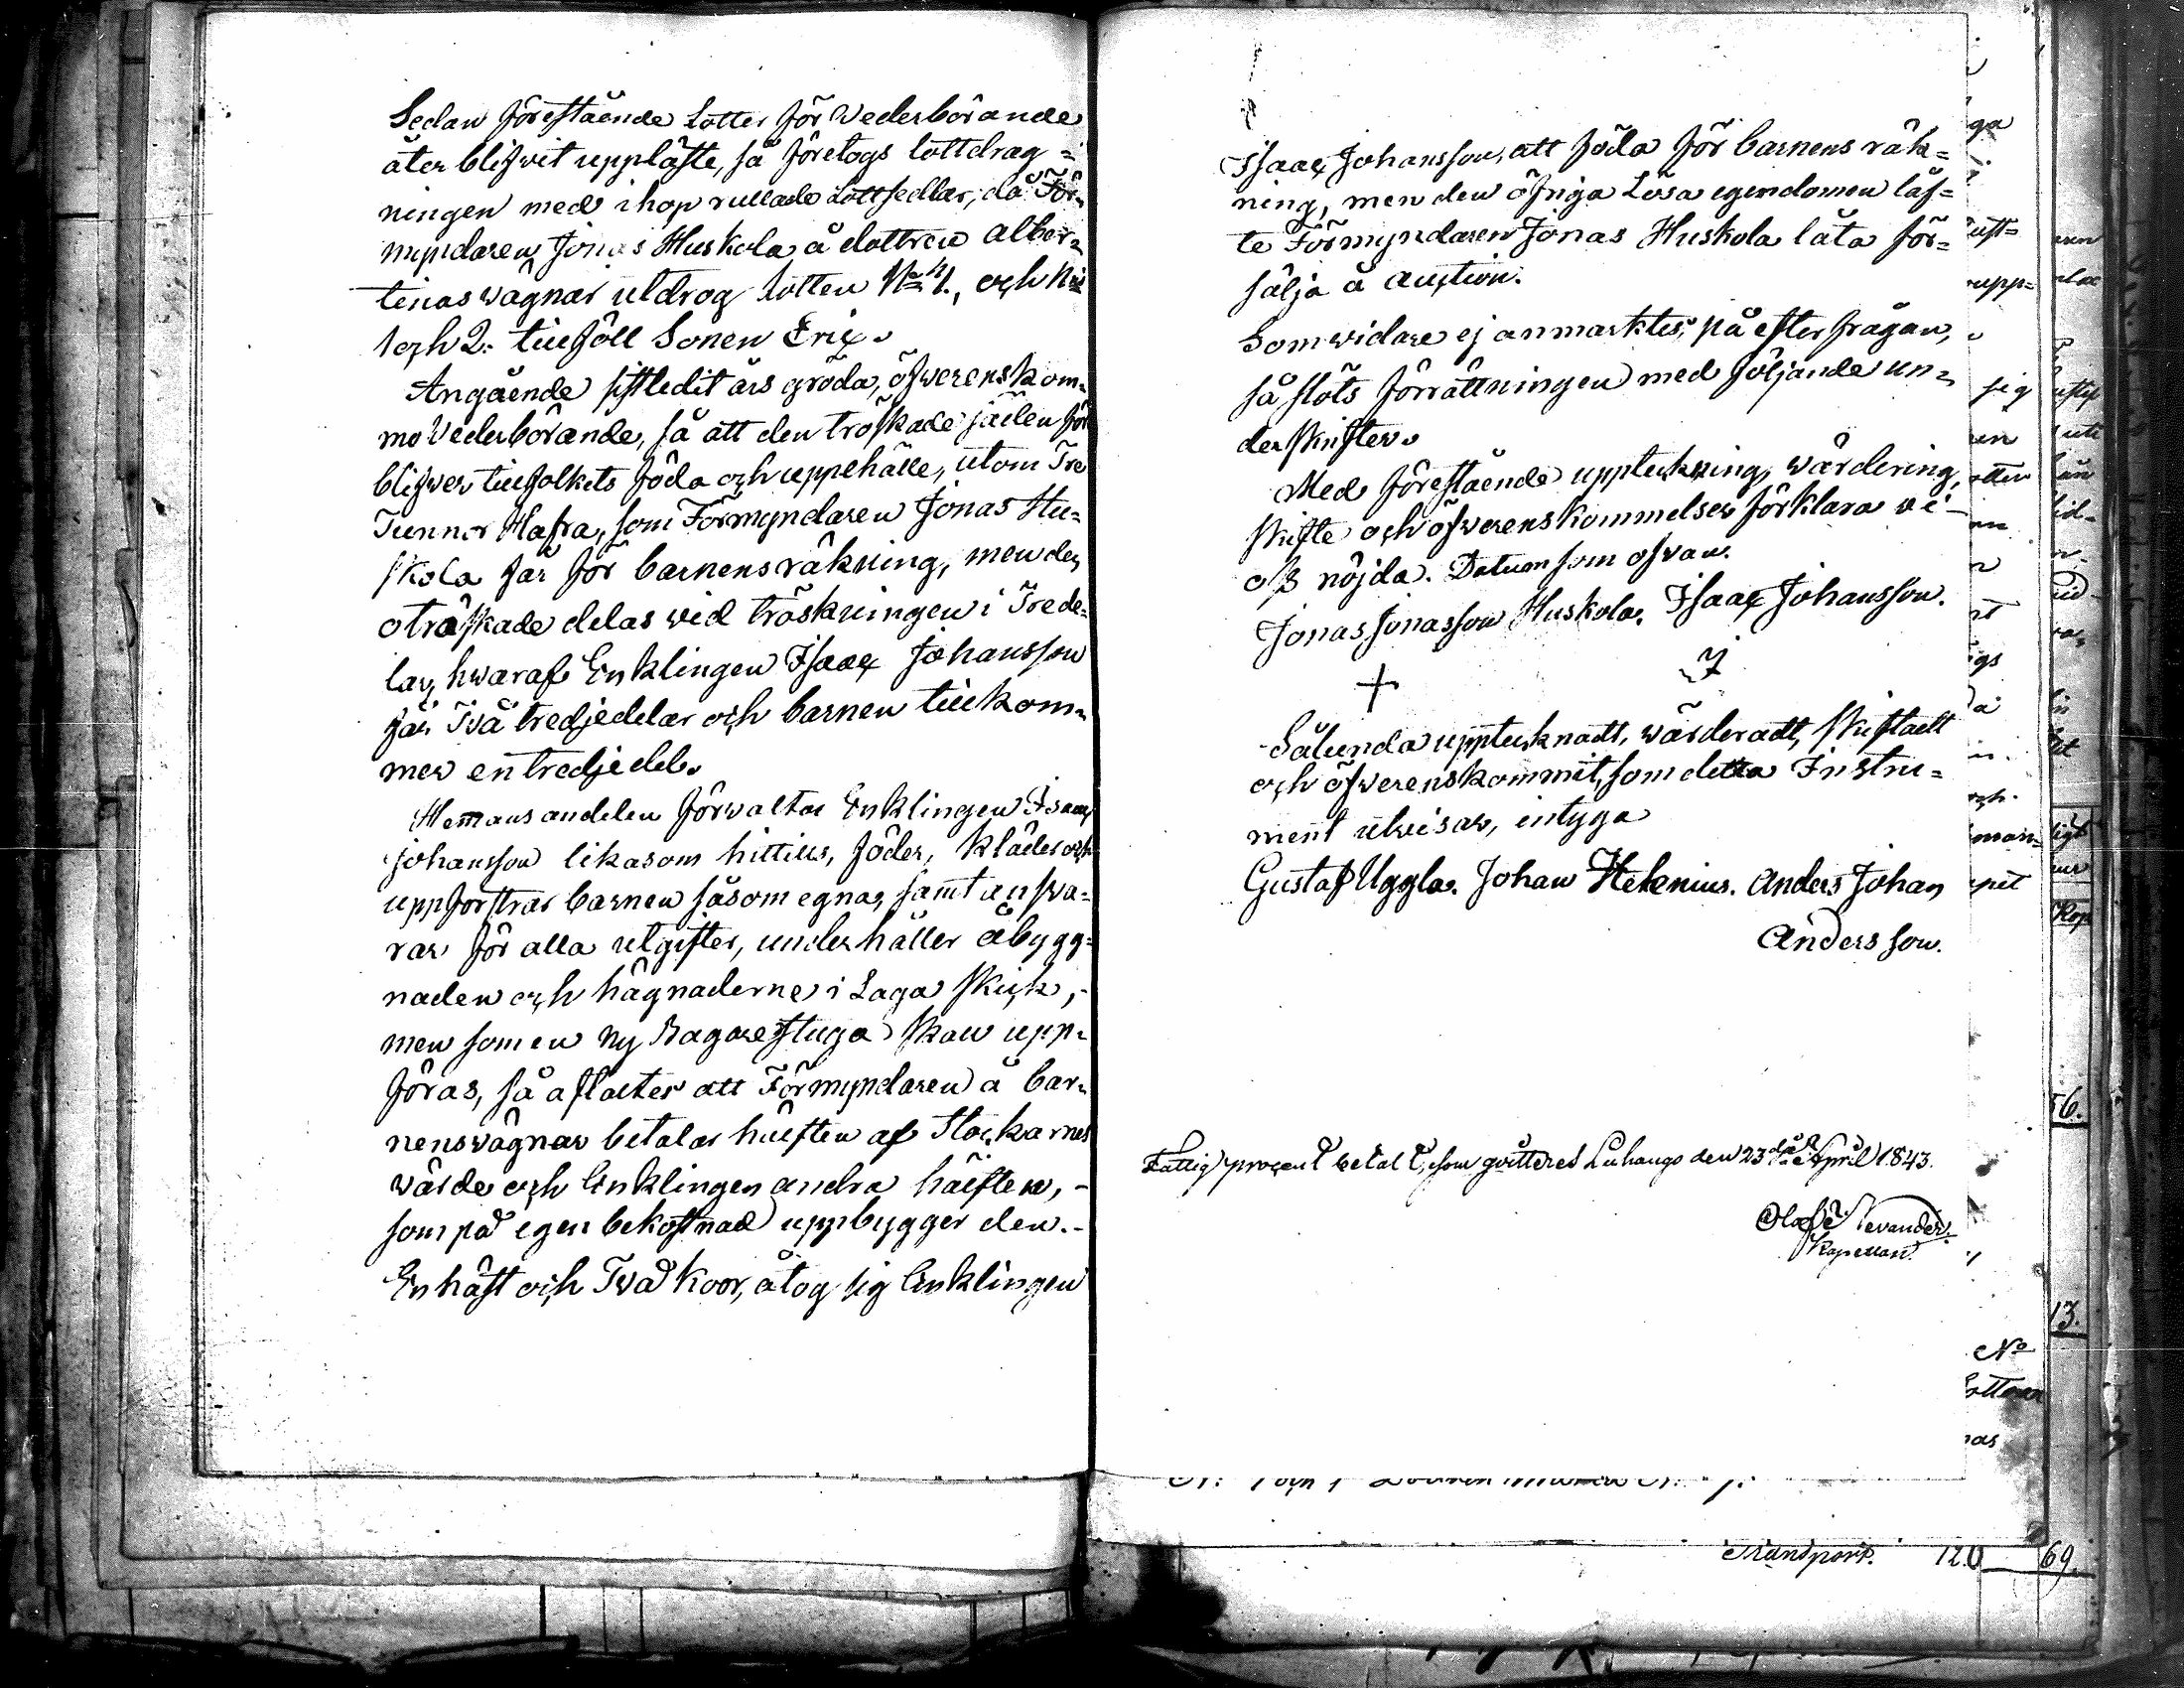 Sedan föreſtående Lotter för Wederbörande
åter blifwit uppläſte, så företogs lottdrag=
ningen med ihop rullade Lottſedlar, då För=
myndaren Jonas Huskola å dottren Alber=
tinas wägnar utdrog lotten
1 och 2. tillföll Sonen Eric.
Angående siſtledit års gröda, öfwerenskom=
mo Wederbörande, så att den tröſkade säden för
blifwer till folkets föda och uppehälle, utom Tre
Tunnor Hafra, som Förmyndaren Jonas Hu=
ſkola får för barnens räkning, men den
otröſkade delas wid tröskningen i Trede=
lar, hwaraf Enklingen Iſaac Johansson
får Två tredjedelar och barnen tillkom=
mer en tredjedel.
Hemmans andelen förwaltar Enklingen Isaac
Johansson likasom hittills, föder, kläder och
uppfoſtrar barnen såsom egna, samt answa=
rar för alla utgifter, underhåller åbygg=
naden och hägnaderne i Laga ſkick,
men som en ny Bagareſtuga ſkall upp=
föras, så aftaltes att Förmyndaren å bar=
nens wägnar betalar hälften af Stockarnes
wärde och Enklingen andra hälften,
som på egen bekoſtnad uppbygger den.
En häſt och Två Koor, åtog sig Enklingen
Iſaac Johansson, att föda för barnens räk=
ning, men den öfriga Lösa egendomen låf=
te Förmyndaren Jonas Huskola låta för=
sälja å auction.
Som widare ej anmärktes, på efterfrågan,
så ſlöts förrättningen med följande un=
derſkrifter.
Med föreſtående uppteckning, wärdering,
ſkifte och öfwerenskommelser förklara vi
oſs nöjda. Datum som ofwan.
Jonas Jonasson Huskola. Iſaac Johansson.
+
Sålunda upptecknadt, wärderadt, ſkiftadt
och öfwerenskommit, som detta Instru=
ment utwisar, intyga
Gustaf Uggla. Johan Helenius. Anders Johan
Andersson.
Fattig procent betalt, som qvitteras Luhango den 23 April 1843.
Olof Nevander.
Kapellan.
Transport. 120 69.